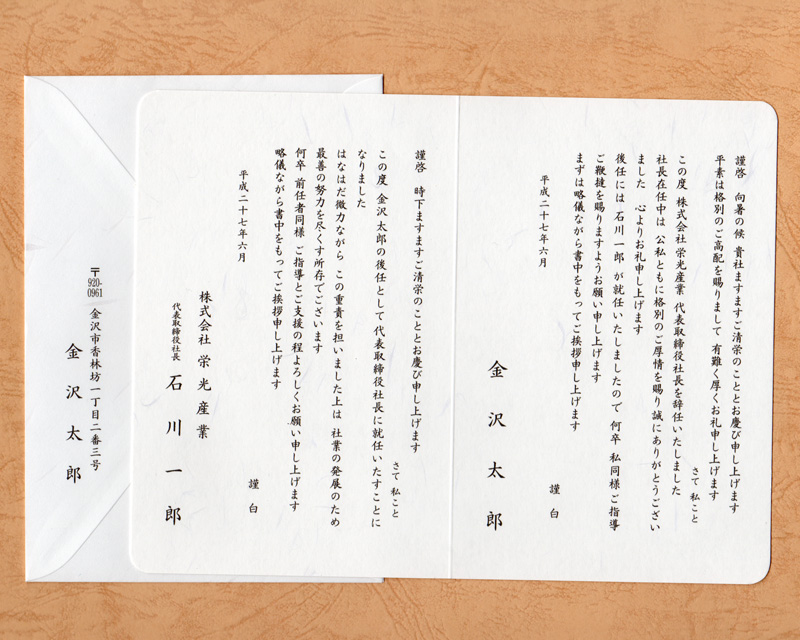 謹啓　向暑の候 貴社ますますご清栄のこととお慶び申し上げます
平素は格別のご高配を賜りまして 有難く厚くお礼申し上げます
さて 私こと
この度 株式会社栄光産業 代表取締役社長を辞任いたしました
社長在任中は 公私ともに格別のご厚情を賜り誠にありがとうござい
ました　心よりお礼申し上げます
後任には 石川一郎 が就任いたしましたので 何卒 私同様ご指導
ご鞭撻を賜りますようお願い申し上げます
まずは略儀ながら書中をもってご挨拶申し上げます
謹白
平成二十七年六月
金沢太郎
謹啓　時下ますますご清栄のこととお慶び申し上げます
さて 私こと
この度 金沢太郎の後任として代表取締役社長に就任いたすことに
なりました
はなはだ微力ながら この重責を担いました上は 社業の発展のため
最善の努力を尽くす所存でございます
何卒 前任者同様 ご指導とご支援の程よろしくお願い申し上げます
略儀ながら書中をもってご挨拶申し上げます
謹白
平成二十七年六月
株式会社 栄光産業
代表取締役社長 石川一郎
〒920-0961 金沢市香林坊一丁目二番三号
金沢太郎